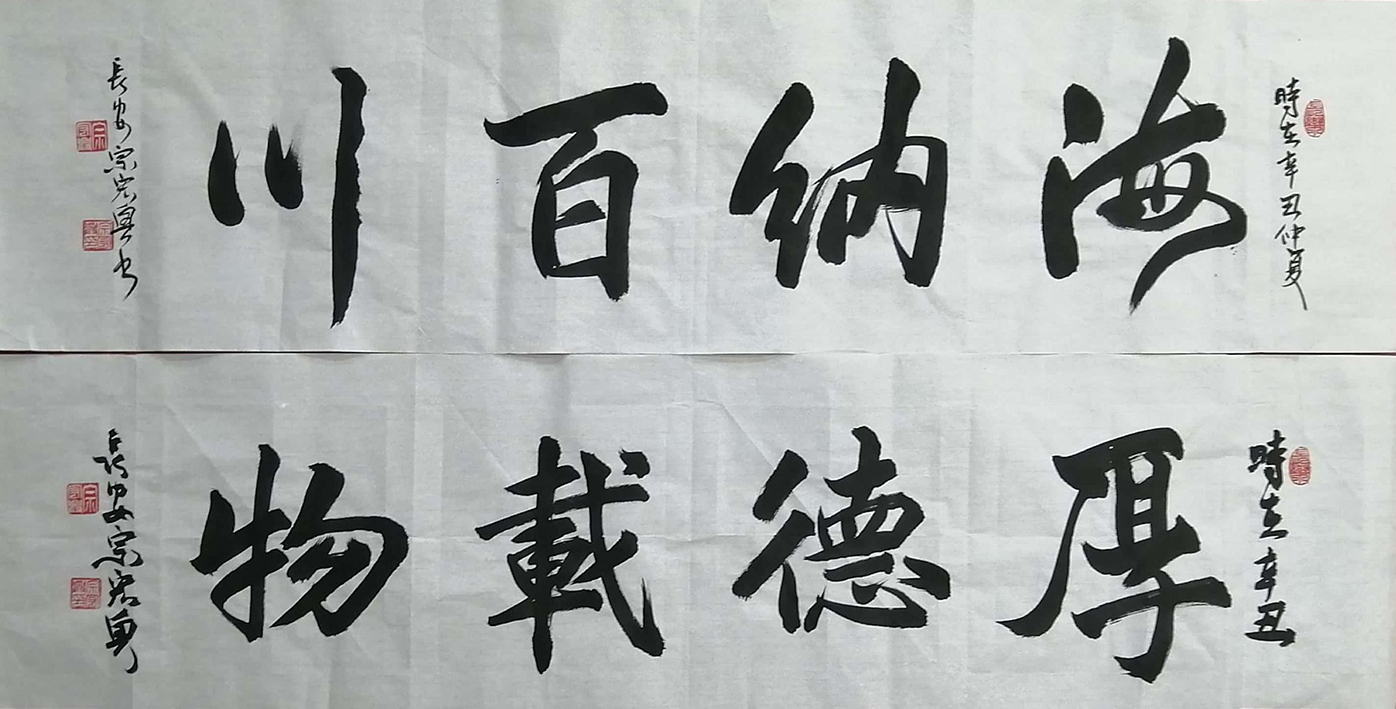 時在辛丑仲夏
海納百川
長安宗宏勇書
時在辛丑
厚德載物
長安宗宏勇